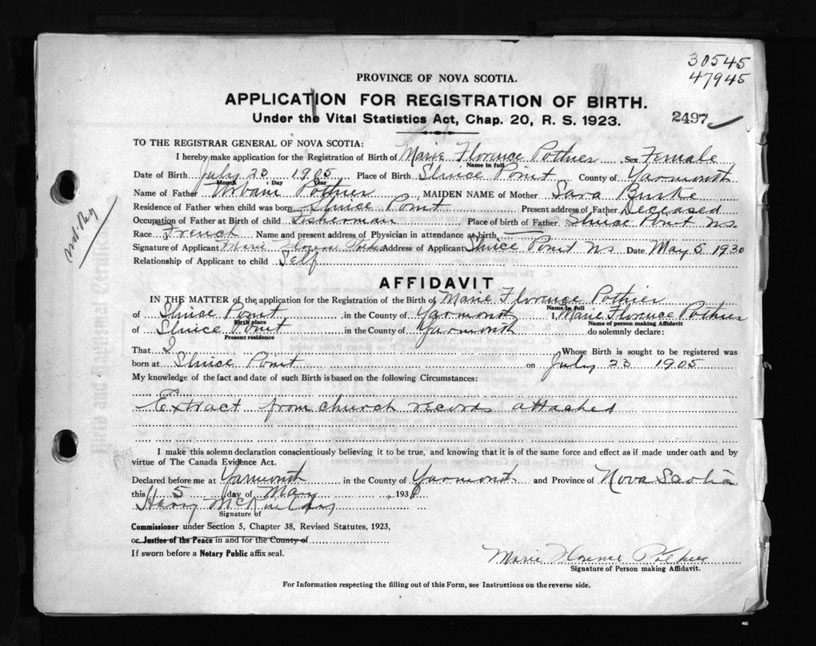 30545
47945
PROVINCE OF NOVA SCOTIA.
APPLICATION FOR REGISTRATION OF BIRTH.
Under the Vital Statistics Act, Chap. 20, R. S. 1923.
2497
TO THE REGISTRAR GENERAL OF NOVA SCOTIA:
I hereby make application for the Registration of Birth of Marie Florence Pothier Sex Female
Name in full
Date of Birth July 23 1905 Place of Birth Sluice Point County of Yarmouth
Month Day
Name of Father Pothier MAIDEN NAME of Mother Sara Burke
Residence of Father when child was born Sluice Point Present address of Father Deceased
Occupation of Father at Birth of child Fisherman Place of birth of Father Sluice Point NS
Race French Name and present address of Physician in attendance at birth, —
Signature of Applicant Marie Florence Pothier Address of Applicant Sluice Point NS Date May 5 1930
Relationship of Applicant to child Self
Not Reg
AFFIDAVIT
IN THE MATTER of the application for the Registration of the Birth of Marie Florence Pothier
Name in full
of Sluice Point in the County of Yarmouth I, Marie Florence Pothier
Birth place Name of person making Affidavit
of Sluice Point in the County of Yarmouth do solemnly declare:
Present residence
That I Whose Birth is sought to be registered was
born at Sluice Point on July 23 1905
My knowledge of the fact and date of such Birth is based on the following Circumstances:
Extract from church records attached
I make this solemn declaration conscientiously believing it to be true, and knowing that it is of the same force and effect as if made under oath and by
virtue of The Canada Evidence Act.
Declared before me at Yarmouth in the County of Yarmouth and Province of Nova Scotia
this 5 day of May, 193
Harry
Signature of
Commissioner under Section 5, Chapter 38, Revised Statutes, 1923,
or Justice of the Peace in and for the County of
If sworn before a Notary Public affix seal.
Marie Florence Pothier
Signature of Person making Affidavit.
For Information respecting the filling out of this Form, see Instructions on the reverse side.